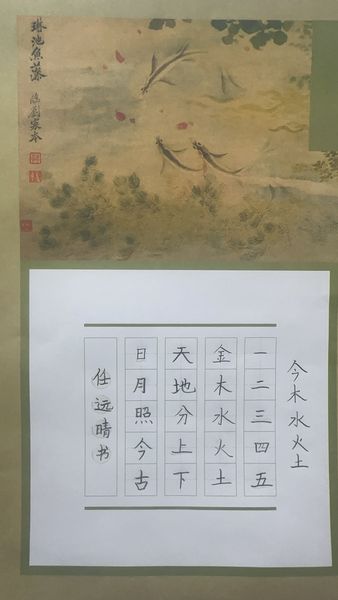 琳池魚藻
臨劉寀本
今木水火土
一二三四五
金木水火土
天地分上下
日月照今古
任远晴书